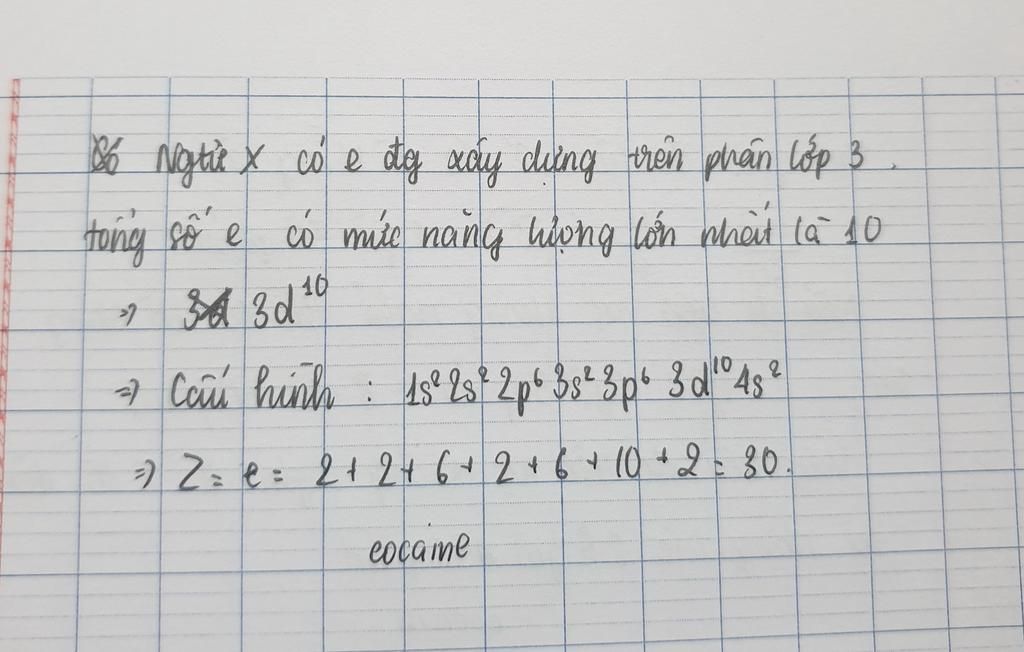 Ngtử X có e đg xây dựng trên phân lớp 3.
tổng số e có mức năng lượng lớn nhất là 10
=> 3d¹⁰
=> Cấu hình : 1s² 2s² 2p⁶ 3s² 3p⁶ 3d¹⁰ 4s²
=> Z = e = 2 + 2 + 6 + 2 + 6 + 10 + 2 = 30.
cocaine